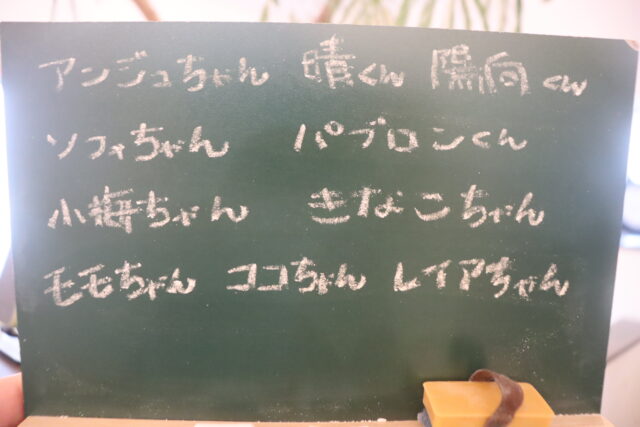 アンジュちゃん 晴くん 陽向くん
ソフィちゃん パブロンくん
小梅ちゃん きなこちゃん
モモちゃん ココちゃん レイアちゃん